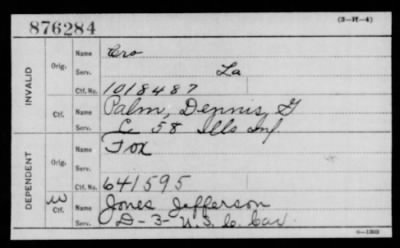 876284
(3-H-4)
INVALID
Orig.
Name Cro
Serv. La
Ctf. No. 1018487
Ctf.
Name Palm, Dennis G
Serv. C 58 Ills Inf
DEPENDENT
Orig.
Name Fox
Serv.
Ctf. No. 641595
W
Ctf.
Name Jones Jefferson
Serv. D-3-U.S.C. Cav